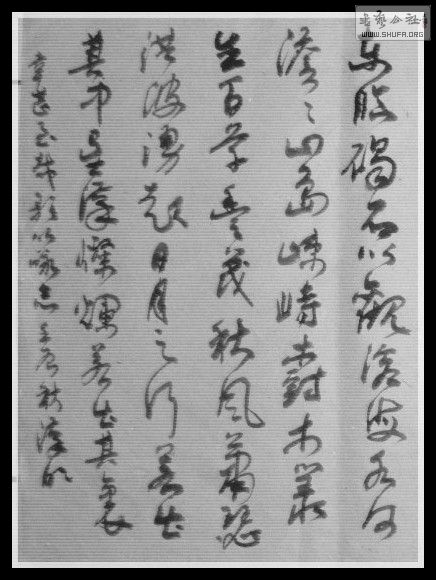 書藝公社
WWW.SHUFA.ORG
東臨碣石以觀滄海水何
澹〻山島竦峙樹木叢
生百草豐茂秋風蕭瑟
洪波湧起日月之行若出
其中星漢燦爛若出其裏
幸甚至哉歌以詠志壬辰秋漢